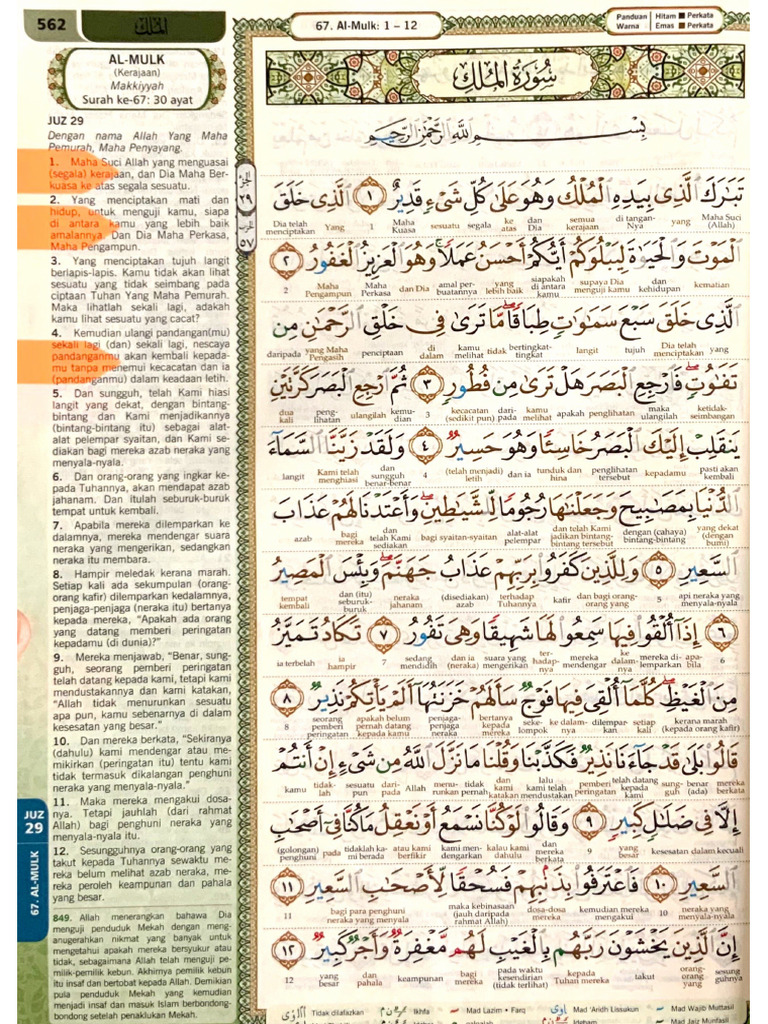 562
الملك
67. Al-Mulk: 1 – 12
Panduan Warna
Hitam Perkata
Emas Perkata
AL-MULK
(Kerajaan)
Makkiyyah
Surah ke-67: 30 ayat
JUZ 29
Dengan nama Allah Yang Maha
Pemurah, Maha Penyayang.
1. Maha Suci Allah yang menguasai
(segala) kerajaan, dan Dia Maha Ber-
kuasa ke atas segala sesuatu.
2. Yang menciptakan mati dan
hidup, untuk menguji kamu, siapa
di antara kamu yang lebih baik
amalannya. Dan Dia Maha Perkasa,
Maha Pengampun.
3. Yang menciptakan tujuh langit
berlapis-lapis. Kamu tidak akan lihat
sesuatu yang tidak seimbang pada
ciptaan Tuhan Yang Maha Pemurah.
Maka lihatlah sekali lagi, adakah
kamu lihat sesuatu yang cacat?
4. Kemudian ulangi pandangan(mu)
sekali lagi (dan) sekali lagi, nescaya
pandanganmu akan kembali kepada-
mu tanpa menemui kecacatan dan ia
(pandanganmu) dalam keadaan letih.
5. Dan sungguh, telah Kami hiasi
langit yang dekat, dengan bintang-
bintang dan Kami menjadikannya
(bintang-bintang itu) sebagai alat-
alat pelempar syaitan, dan Kami se-
diakan bagi mereka azab neraka yang
menyala-nyala.
6. Dan orang-orang yang ingkar ke-
pada Tuhannya, akan mendapat azab
jahanam. Dan itulah seburuk-buruk
tempat untuk kembali.
7. Apabila mereka dilemparkan ke
dalamnya, mereka mendengar suara
neraka yang mengerikan, sedangkan
neraka itu membara.
8. Hampir meledak kerana marah.
Setiap kali ada sekumpulan (orang-
orang kafir) dilemparkan kedalamnya,
penjaga-penjaga (neraka itu) bertanya
kepada mereka, "Apakah ada orang
yang datang memberi peringatan
kepadamu (di dunia)?"
9. Mereka menjawab, "Benar, sung-
guh, seorang pemberi peringatan
telah datang kepada kami, tetapi kami
mendustakannya dan kami katakan,
"Allah tidak menurunkan sesuatu
apa pun, kamu sebenarnya di dalam
kesesatan yang besar."
10. Dan mereka berkata, "Sekiranya
(dahulu) kami mendengar atau me-
mikirkan (peringatan itu) tentu kami
tidak termasuk dikalangan penghuni
neraka yang menyala-nyala."
11. Maka mereka mengakui dosa-
nya. Tetapi jauhlah (dari rahmat
Allah) bagi penghuni neraka yang
menyala-nyala itu.
12. Sesungguhnya orang-orang yang
takut kepada Tuhannya sewaktu me-
reka belum melihat azab neraka, me-
reka peroleh keampunan dan pahala
yang besar.
849. Allah menerangkan bahawa Dia
menguji penduduk Mekah dengan meng-
anugerahkan nikmat yang banyak untuk
mengetahui apakah mereka bersyukur atau
tidak, sebagaimana Allah telah menguji pe-
milik-pemilik kebun. Akhirnya pemilik kebun
itu insaf dan bertobat kepada Allah. Demikian
pula penduduk Mekah yang kemudian
menjadi insaf dan masuk Islam berbondong-
bondong setelah penaklukan Mekah.
JUZ
29
67. AL-MULK
الجزء ٢٩
الحزب ٥٧
سُورَةُ الْمُلْكِ
بِسْمِ اللَّهِ الرَّحْمَٰنِ الرَّحِيمِ
تَبَارَكَ الَّذِي بِيَدِهِ الْمُلْكُ وَهُوَ عَلَىٰ كُلِّ شَيْءٍ قَدِيرٌ ١ الَّذِي خَلَقَ
Maha Suci (Allah) yang di tangan-Nya semua kerajaan dan Dia ke atas segala sesuatu Maha Kuasa 1 Yang Dia telah menciptakan
الْمَوْتَ وَالْحَيَاةَ لِيَبْلُوَكُمْ أَيُّكُمْ أَحْسَنُ عَمَلًا ۚ وَهُوَ الْعَزِيزُ الْغَفُورُ ٢
kematian dan kehidupan supaya Dia menguji kamu siapakah di antara kamu yang lebih baik amal per-buatannya dan Dia Maha Perkasa Maha Pengampun 2
الَّذِي خَلَقَ سَبْعَ سَمَاوَاتٍ طِبَاقًا ۖ مَا تَرَىٰ فِي خَلْقِ الرَّحْمَٰنِ مِنْ
yang Dia telah menciptakan tujuh langit bertingkat-tingkat tidak kamu melihat di dalam penciptaan yang Maha Pengasih daripada
تَفَاوُتٍ ۖ فَارْجِعِ الْبَصَرَ هَلْ تَرَىٰ مِنْ فُطُورٍ ٣ ثُمَّ ارْجِعِ الْبَصَرَ كَرَّتَيْنِ
ketidak-seimbangan maka ulangilah penglihatan apakah kamu melihat dari-pada kecacatan (sedikit pun) 3 kemu-dian ulangilah peng-lihatan dua kali
يَنْقَلِبْ إِلَيْكَ الْبَصَرُ خَاسِئًا وَهُوَ حَسِيرٌ ٤ وَلَقَدْ زَيَّنَّا السَّمَاءَ
pasti akan kembali kepadamu penglihatan tersebut tunduk dan hina dan ia (telah menjadi) letih 4 dan sungguh benar-benar Kami telah menghiasi langit
الدُّنْيَا بِمَصَابِيحَ وَجَعَلْنَاهَا رُجُومًا لِلشَّيَاطِينِ ۖ وَأَعْتَدْنَا لَهُمْ عَذَابَ
yang dekat (dengan bumi) dengan (cahaya) bintang-bintang dan telah Kami jadikan bintang-bintang tersebut alat-alat pelempar bagi syaitan-syaitan dan telah Kami sediakan bagi mereka azab
السَّعِيرِ ٥ وَلِلَّذِينَ كَفَرُوا بِرَبِّهِمْ عَذَابُ جَهَنَّمَ ۖ وَبِئْسَ الْمَصِيرُ
api neraka yang menyala-nyala 5 dan bagi orang-orang yang kafir terhadap Tuhannya (disediakan) azab neraka jahanam dan (itu) seburuk-buruk tempat kembali
٦ إِذَا أُلْقُوا فِيهَا سَمِعُوا لَهَا شَهِيقًا وَهِيَ تَفُورُ ٧ تَكَادُ تَمَيَّزُ
6 apa-bila mereka di-lemparkan ke dalam-nya mereka mendengar ter-hadap-nya suara yang mengerikan dan ia (neraka) sedang mendidih 7 hampir ia ia terbelah
مِنَ الْغَيْظِ ۖ كُلَّمَا أُلْقِيَ فِيهَا فَوْجٌ سَأَلَهُمْ خَزَنَتُهَا أَلَمْ يَأْتِكُمْ نَذِيرٌ ٨
kerana marah (kepada orang kafir) setiap kali dilempar-kan ke dalam-nya seke-lompok bertanya kepada mereka penjaga-penjaga neraka apakah belum pernah datang kepada kamu seorang pemberi peringatan 8
قَالُوا بَلَىٰ قَدْ جَاءَنَا نَذِيرٌ فَكَذَّبْنَا وَقُلْنَا مَا نَزَّلَ اللَّهُ مِنْ شَيْءٍ إِنْ أَنْتُمْ
mereka berkata benar (ada) sung-guh telah datang kepada kami pemberi peringatan lalu kami mendustakan dan kami katakan tidak menu-runkan Allah dari-pada sesuatu pun tidak-lah kamu
إِلَّا فِي ضَلَالٍ كَبِيرٍ ٩ وَقَالُوا لَوْ كُنَّا نَسْمَعُ أَوْ نَعْقِلُ مَا كُنَّا فِي أَصْحَابِ
kecuali dalam kesesatan yang besar 9 dan mereka berkata kalau kami dahulu kami men-dengarkan atau kami berfikir tidaklah ka-mi berada pada (golongan) penghuni
السَّعِيرِ ١٠ فَاعْتَرَفُوا بِذَنْبِهِمْ فَسُحْقًا لِأَصْحَابِ السَّعِيرِ ١١
neraka yang menyala-nyala 10 kemudian mereka mengakui dosa-dosa mereka maka kebinasaan (jauh daripada rahmat Allah) bagi para penghuni neraka yang menyala 11
إِنَّ الَّذِينَ يَخْشَوْنَ رَبَّهُمْ بِالْغَيْبِ لَهُمْ مَغْفِرَةٌ وَأَجْرٌ كَبِيرٌ ١٢
sesung-guhnya orang-orang yang takut kepada Tuhan mereka pada waktu kesendirian (tidak terlihat) bagi mereka keampunan dan pahala yang besar 12
Tidak dilafazkan Ikhfa Mad Lazim • Farq Mad 'Aridh Lissukun Mad Wajib Muttasil
Mad Jaiz Munfasil